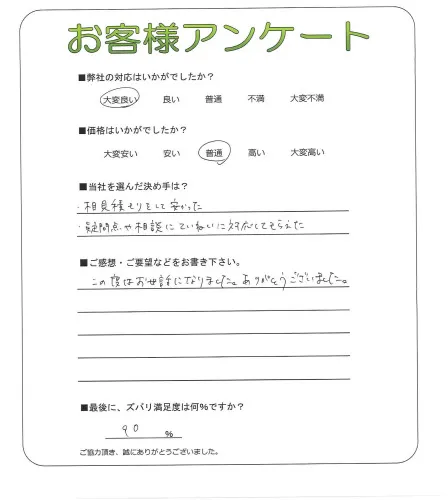 お客様アンケート
■弊社の対応はいかがでしたか?
大変良い 良い 普通 不満 大変不満
■価格はいかがでしたか?
大変安い 安い 普通 高い 大変高い
■当社を選んだ決め手は?
・相見積もりをして安かった
・疑問点や相談にていねいに対応してもらえた
■ご感想・ご要望などをお書き下さい。
この度はお世話になりました。ありがとうございました。
■最後に、ズバリ満足度は何%ですか?
90 %
ご協力頂き、誠にありがとうございました。